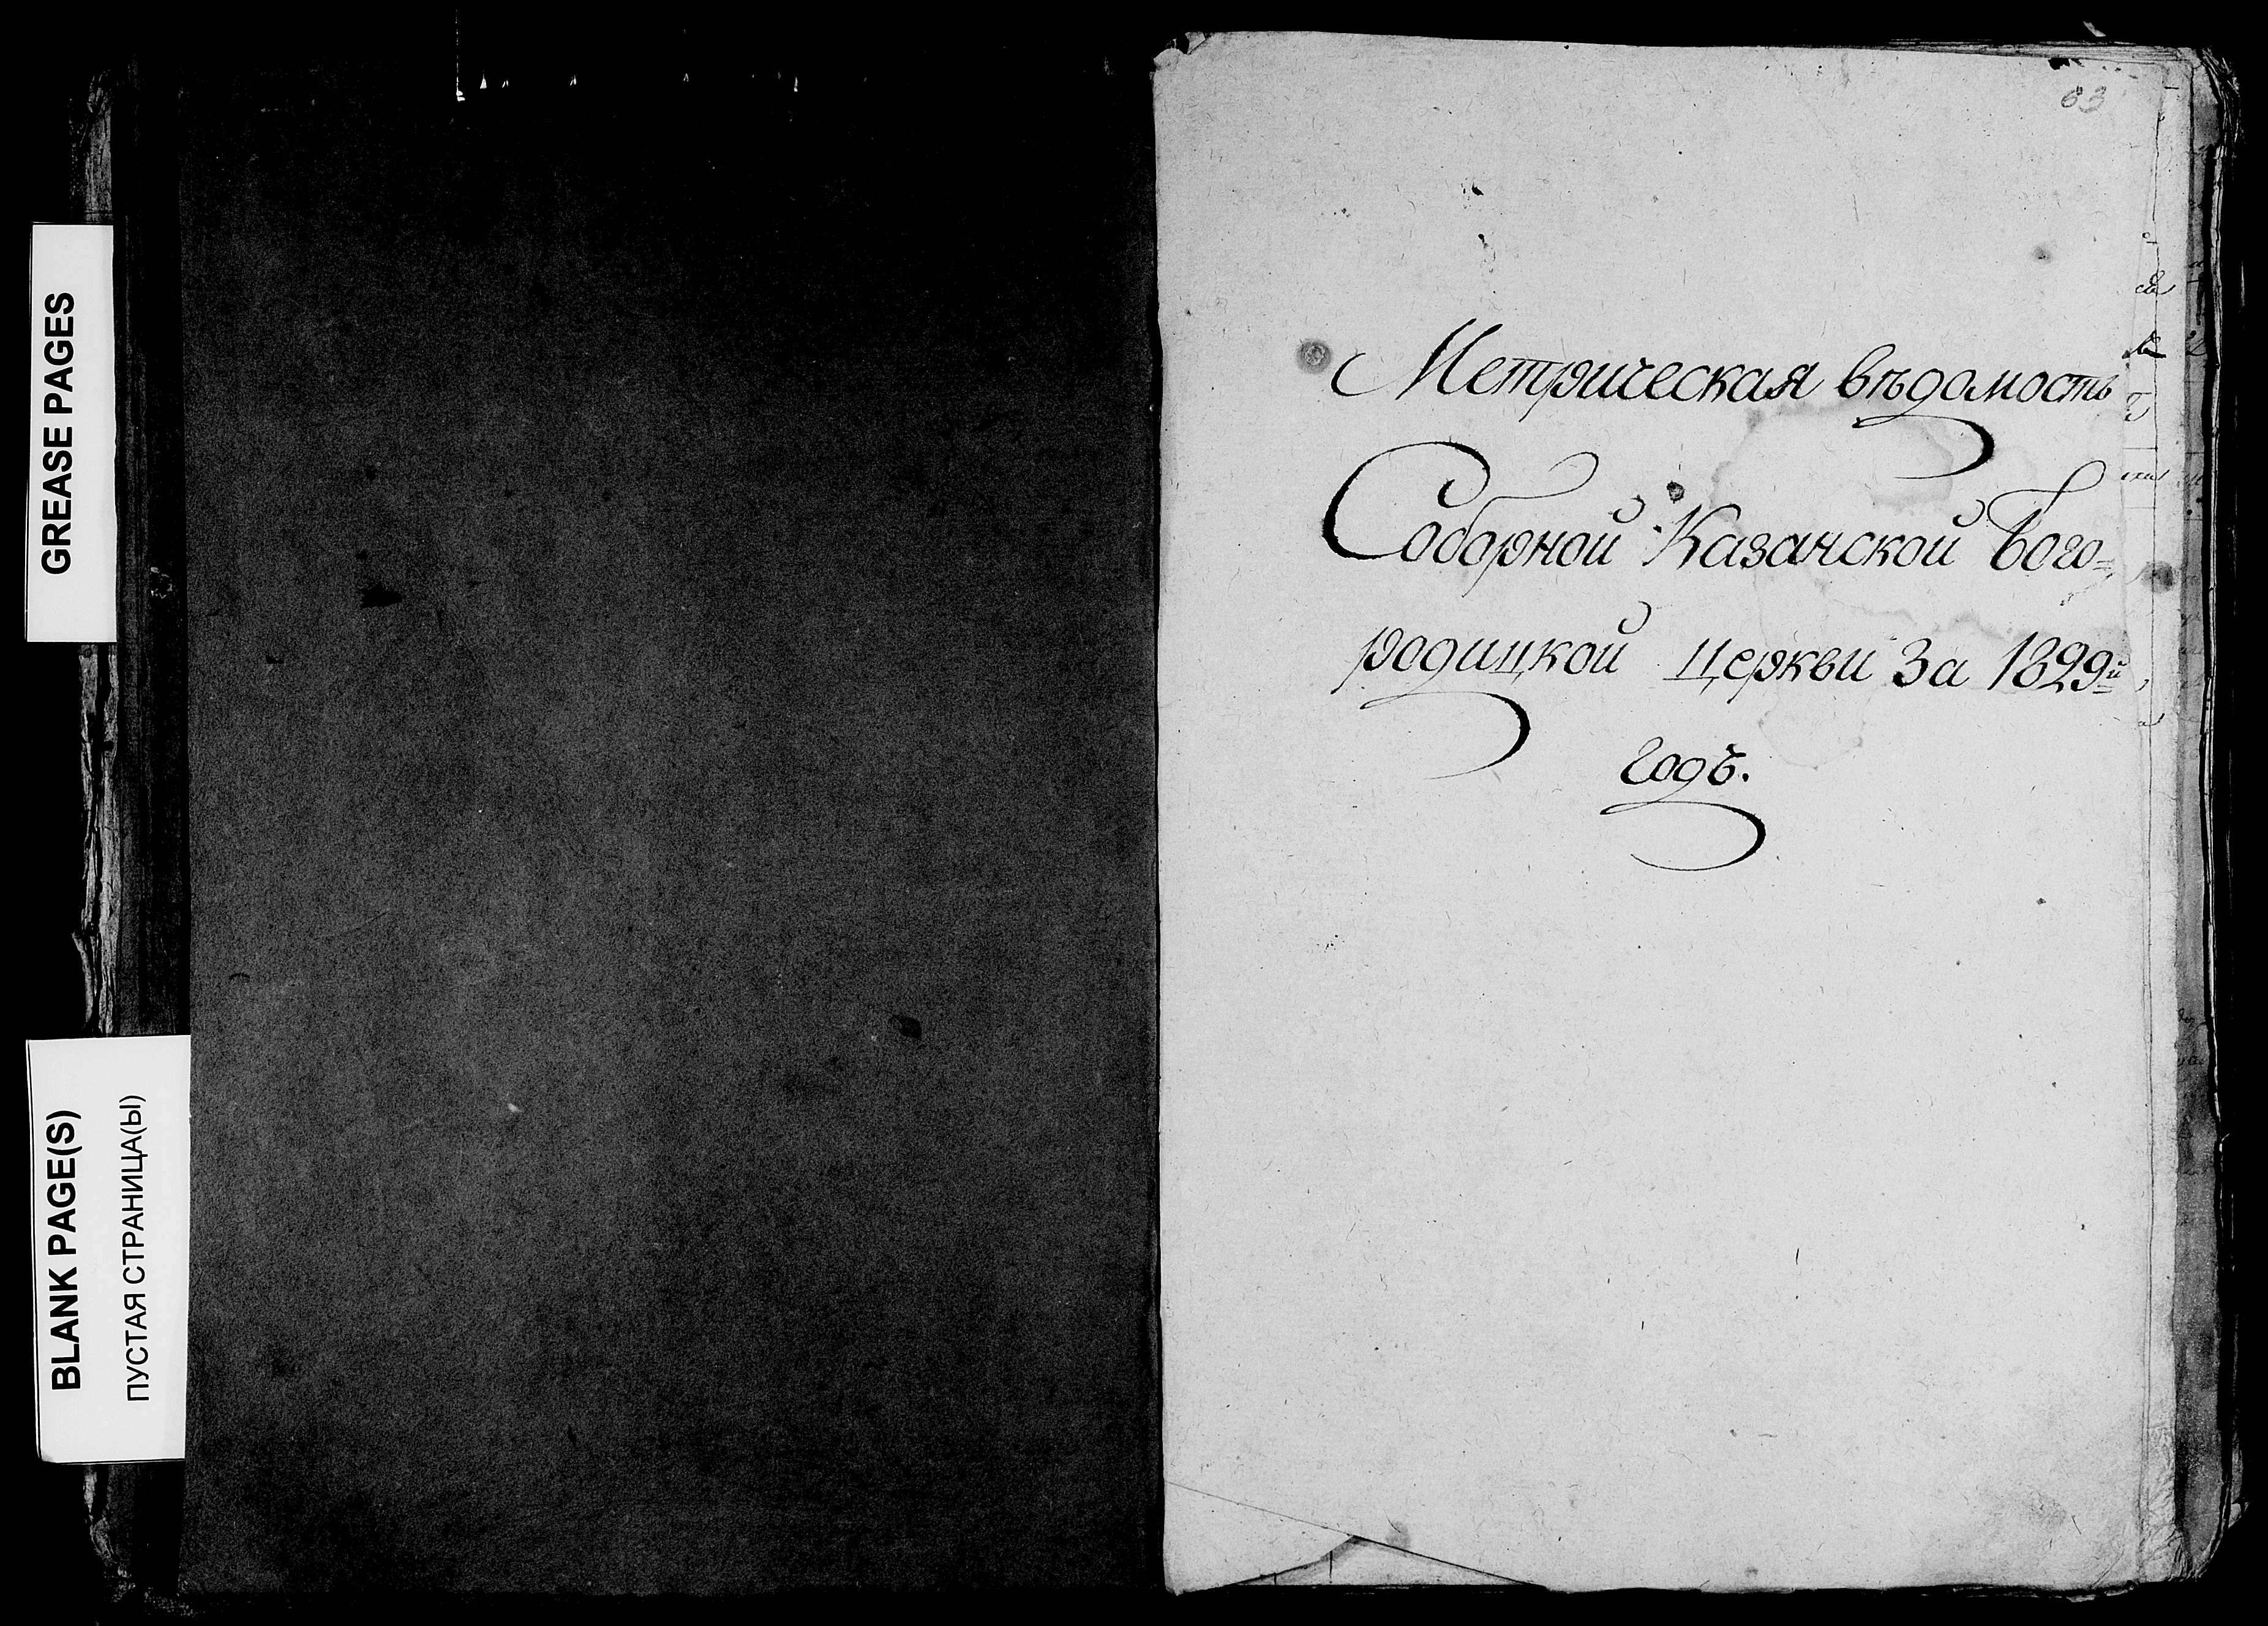 GREASE PAGES
BLANK PAGE(S)
ПУСТАЯ СТРАНИЦА(Ы)
63
Метрическая вѣдомость
Соборной Казанской Бого=
родицкой Церкви За 1829й
годъ.